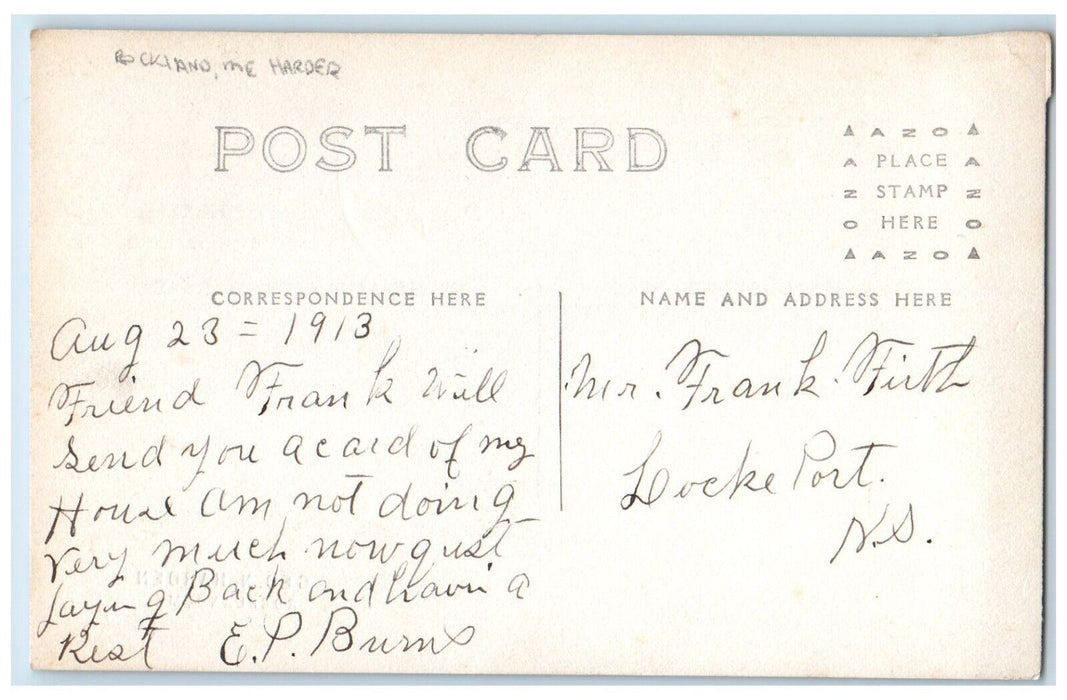 ROCKLAND, ME HARDER
POST CARD
AZO
PLACE
STAMP
HERE
AZO
CORRESPONDENCE HERE
NAME AND ADDRESS HERE
Aug 23 = 1913
Friend Frank Will
Send you a card of my
House am not doing
Very much now gust
laying Back and havin a
Rest E.P. Burns
Mr. Frank. Firth
Locke Port.
N.S.